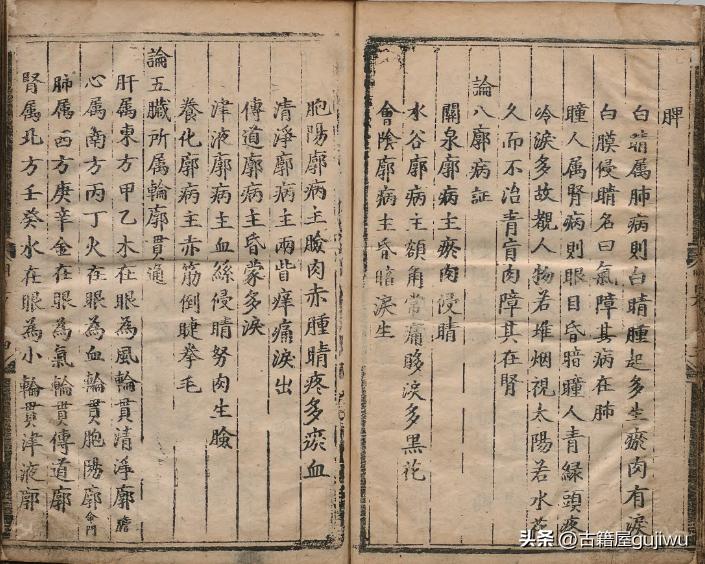 脾
白睛属肺病則白睛腫起多生瘀肉有淚
白膜侵睛名曰氣障其病在肺
瞳人属腎病則眼目昏暗瞳人青緑頭疼
冷淚多故覩人物若堆烟視太陽若水花
久而不治青盲内障其在腎
論八廓病証
關泉廓病主瘀肉侵睛
水谷廓病主額角常痛眵淚多黑花
會陰廓病主昏暗淚生
胞陽廓病主臉肉赤腫睛疼多瘀血
清淨廓病主兩眥痒痛淚出
傳道廓病主昏蒙多淚
津液廓病主血絲侵睛努肉生臉
養化廓病主赤筋倒睫拳毛
論五臓所属輪廓貫通
肝属東方甲乙木在眼為風輪貫清淨廓膽
心属南方丙丁火在眼為血輪貫胞陽廓命門
肺属西方庚辛金在眼為氣輪貫傳道廓
腎属北方壬癸水在眼為小輪貫津液廓
头条 @古籍屋gujiwu